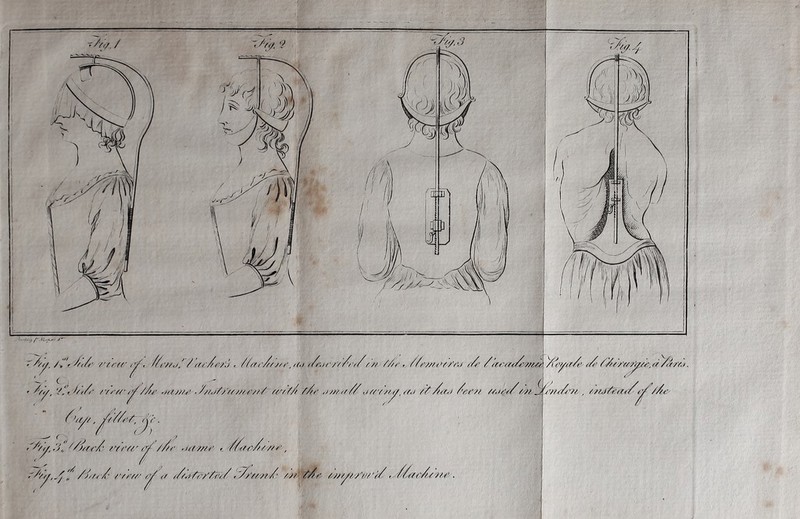 Fig. 1
Fig. 2
Fig. 3
Fig. 4
Fig. 1st Side view of Mons.r Vacher's Machine, as described in the Memoires de l'academie Royale de Chirurgie, à Paris.
Fig. 2d Side view of the same Instrument with the small swing, as it has been used in London, instead of the
Cap, fillet, &c.
Fig. 3d Back view of the same Machine,
Fig. 4th Back view of a distorted Trunk in the improv'd Machine.